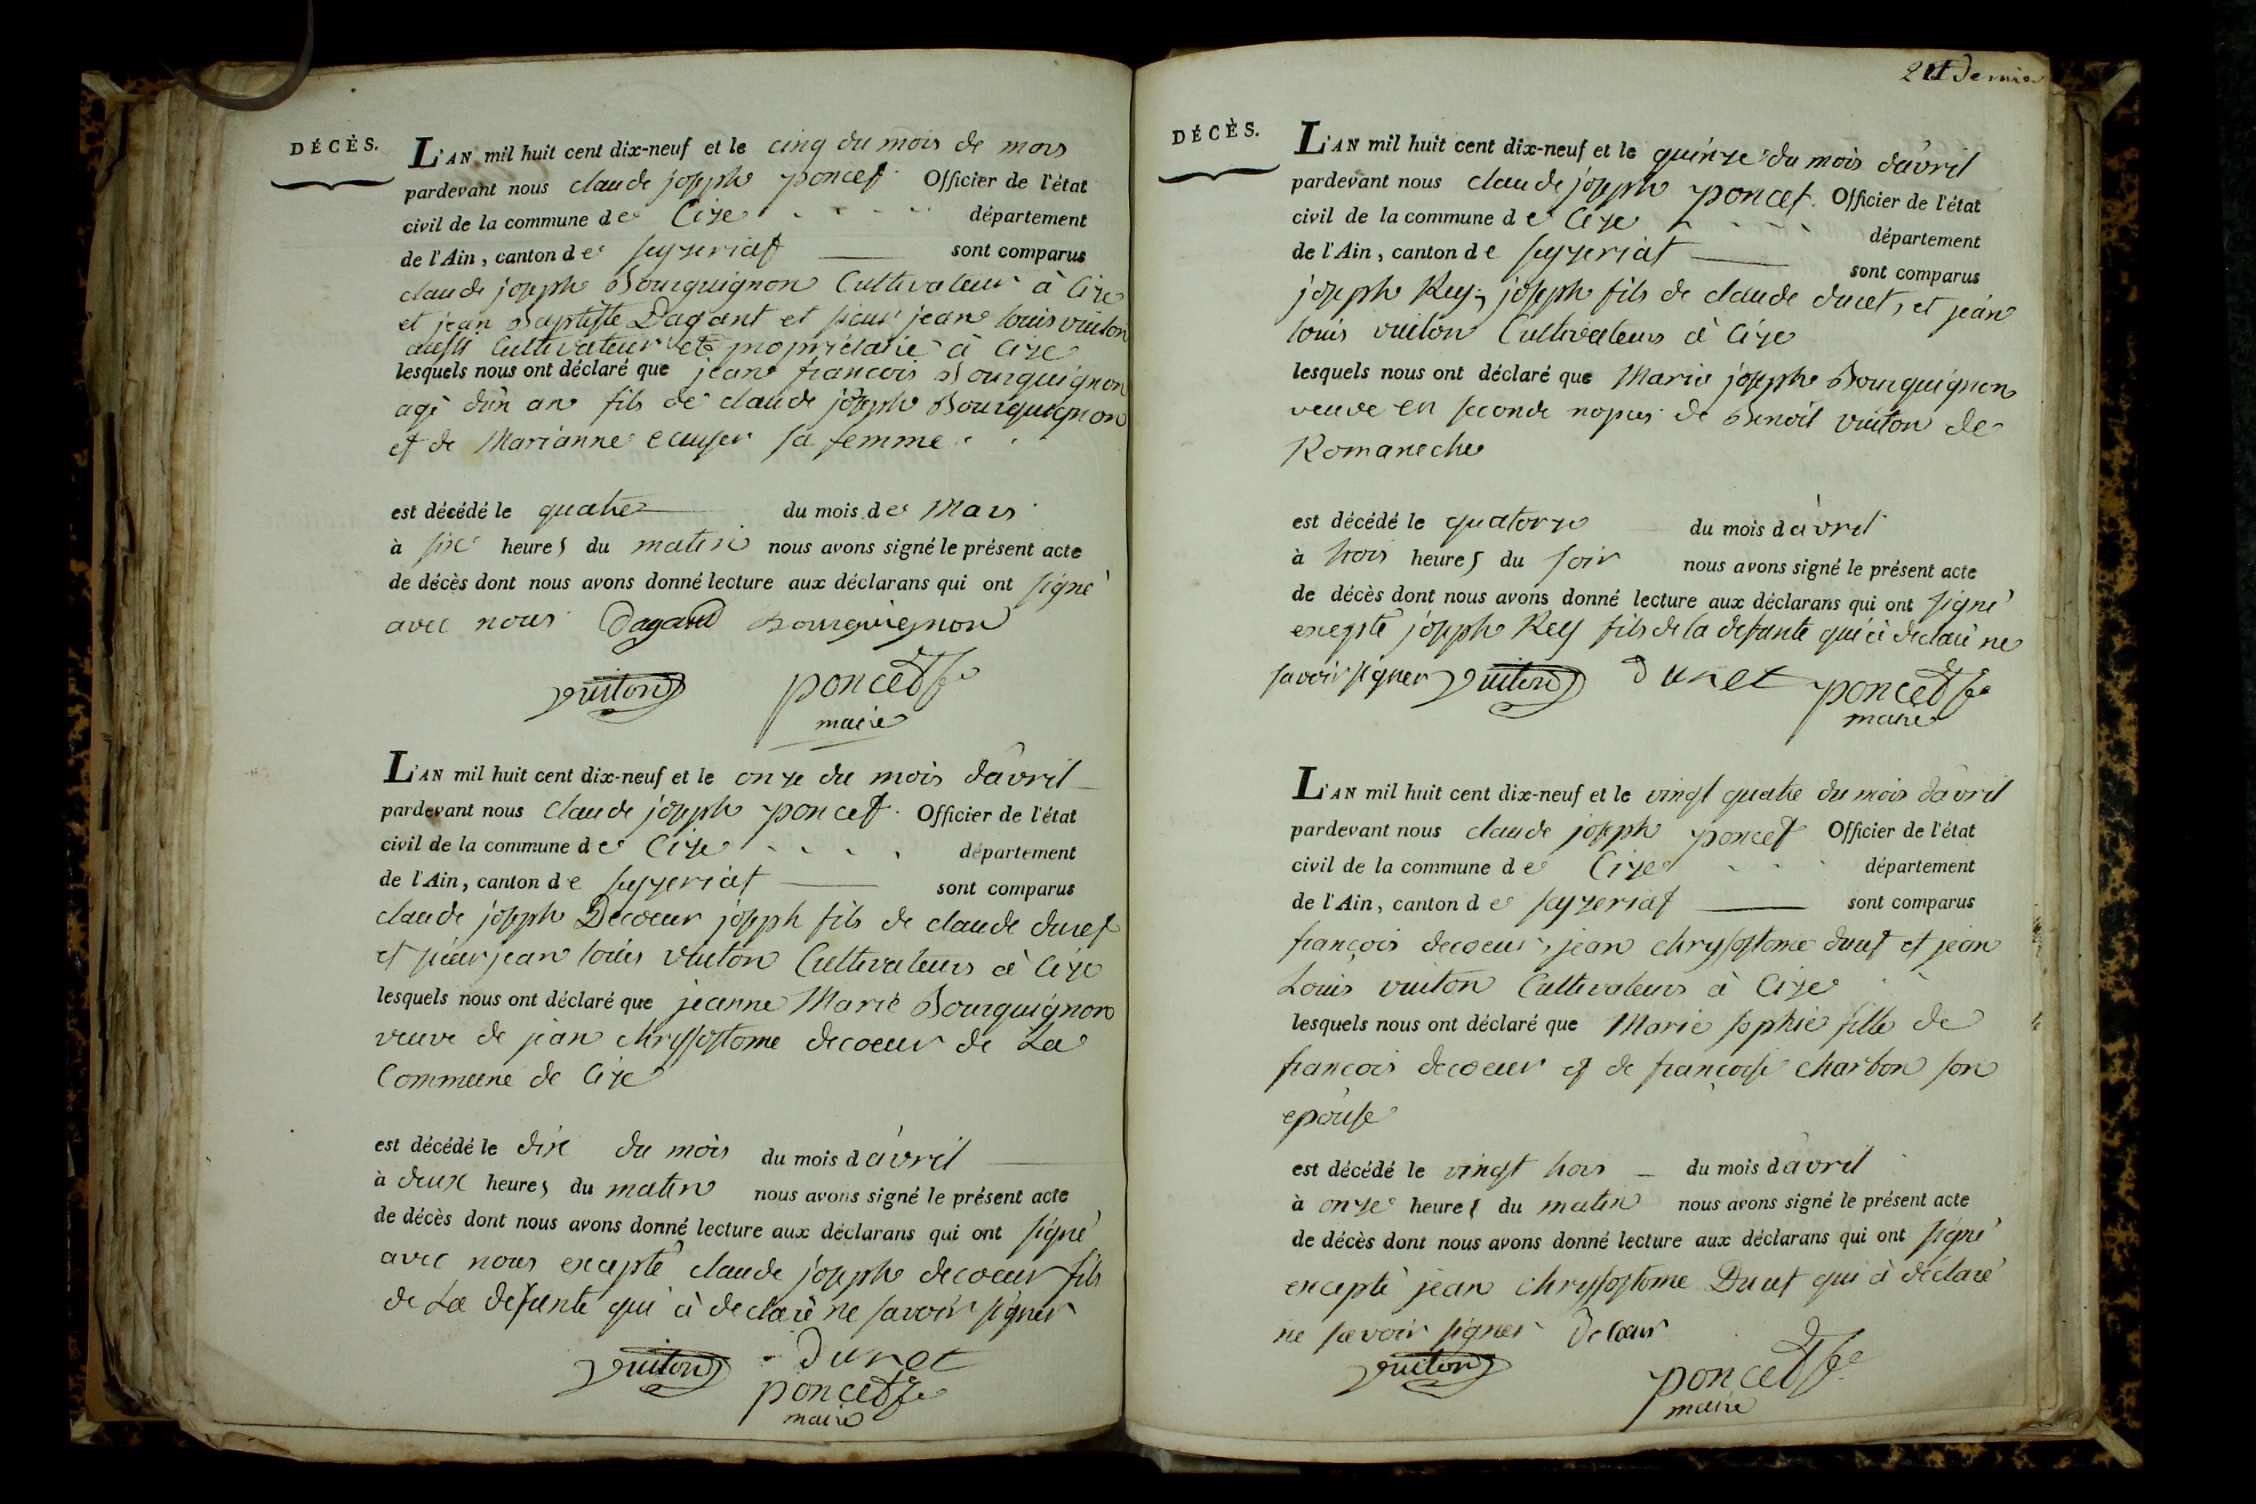 DÉCÈS.
L'AN mil huit cent dix-neuf et le cinq du mois de mars
pardevant nous claude joseph poncet Officier de l'état
civil de la commune de Cize département
de l'Ain, canton de seyzeriat sont comparus
claude joseph Bourguignon Cultivateur à Cize
et jean Baptiste Dagant et sieur jean louis vuiton
aussi Cultivateur et propriétaire à Cize
lesquels nous ont déclaré que jean francois Bourguignon
agé d'un an fils de claude joseph Bourguignon
et de Marianne sa femme
est décédé le quatre du mois de Mars
à six heures du matin nous avons signé le présent acte
de décès dont nous avons donné lecture aux déclarans qui ont signé
avec nous Dagand Bourguignon
vuiton poncet
maire
L'AN mil huit cent dix-neuf et le onze du mois d'avril
pardevant nous claude joseph poncet Officier de l'état
civil de la commune de Cize département
de l'Ain, canton de seyzeriat sont comparus
claude joseph Decoeur joseph fils de claude duret
et sieur jean louis vuiton Cultivateurs à Cize
lesquels nous ont déclaré que jeanne Marie Bourguignon
veuve de jean chryssostome decoeur de La
Commune de Cize
est décédé le dix du mois du mois d'avril
à deux heures du matin nous avons signé le présent acte
de décès dont nous avons donné lecture aux déclarans qui ont signé
avec nous excepté claude joseph decoeur fils
de La defunte qui à declaré ne savoir signer
vuiton duret
poncet
maire
2 et Dernier
DÉCÈS.
L'AN mil huit cent dix-neuf et le quinze du mois d'avril
pardevant nous claude joseph poncet Officier de l'état
civil de la commune de Cize département
de l'Ain, canton de seyzeriat sont comparus
joseph Rey, joseph fils de claude duret, et jean
louis vuiton Cultivateurs à Cize
lesquels nous ont déclaré que Marie joseph Bourguignon
veuve en seconde nopces de Benoit vuiton de
Romaneche
est décédé le quatorze du mois d'avril
à trois heures du soir nous avons signé le présent acte
de décès dont nous avons donné lecture aux déclarans qui ont signé
excepté joseph Rey fils de la defunte qui à declaré ne
savoir signer vuiton duret poncet
maire
L'AN mil huit cent dix-neuf et le vingt quatre du mois d'avril
pardevant nous claude joseph poncet Officier de l'état
civil de la commune de Cize département
de l'Ain, canton de seyzeriat sont comparus
françois decoeur, jean chryssostome duret et jean
Louis vuiton Cultivateurs à Cize
lesquels nous ont déclaré que Marie sophie fille de
francois decoeur et de françoise charbon son
epouse
est décédé le vingt trois du mois d'avril
à onze heures du matin nous avons signé le présent acte
de décès dont nous avons donné lecture aux déclarans qui ont signé
excepté jean chryssostome Duret qui à déclaré
ne savoir signer Decoeur
vuiton poncet
maire